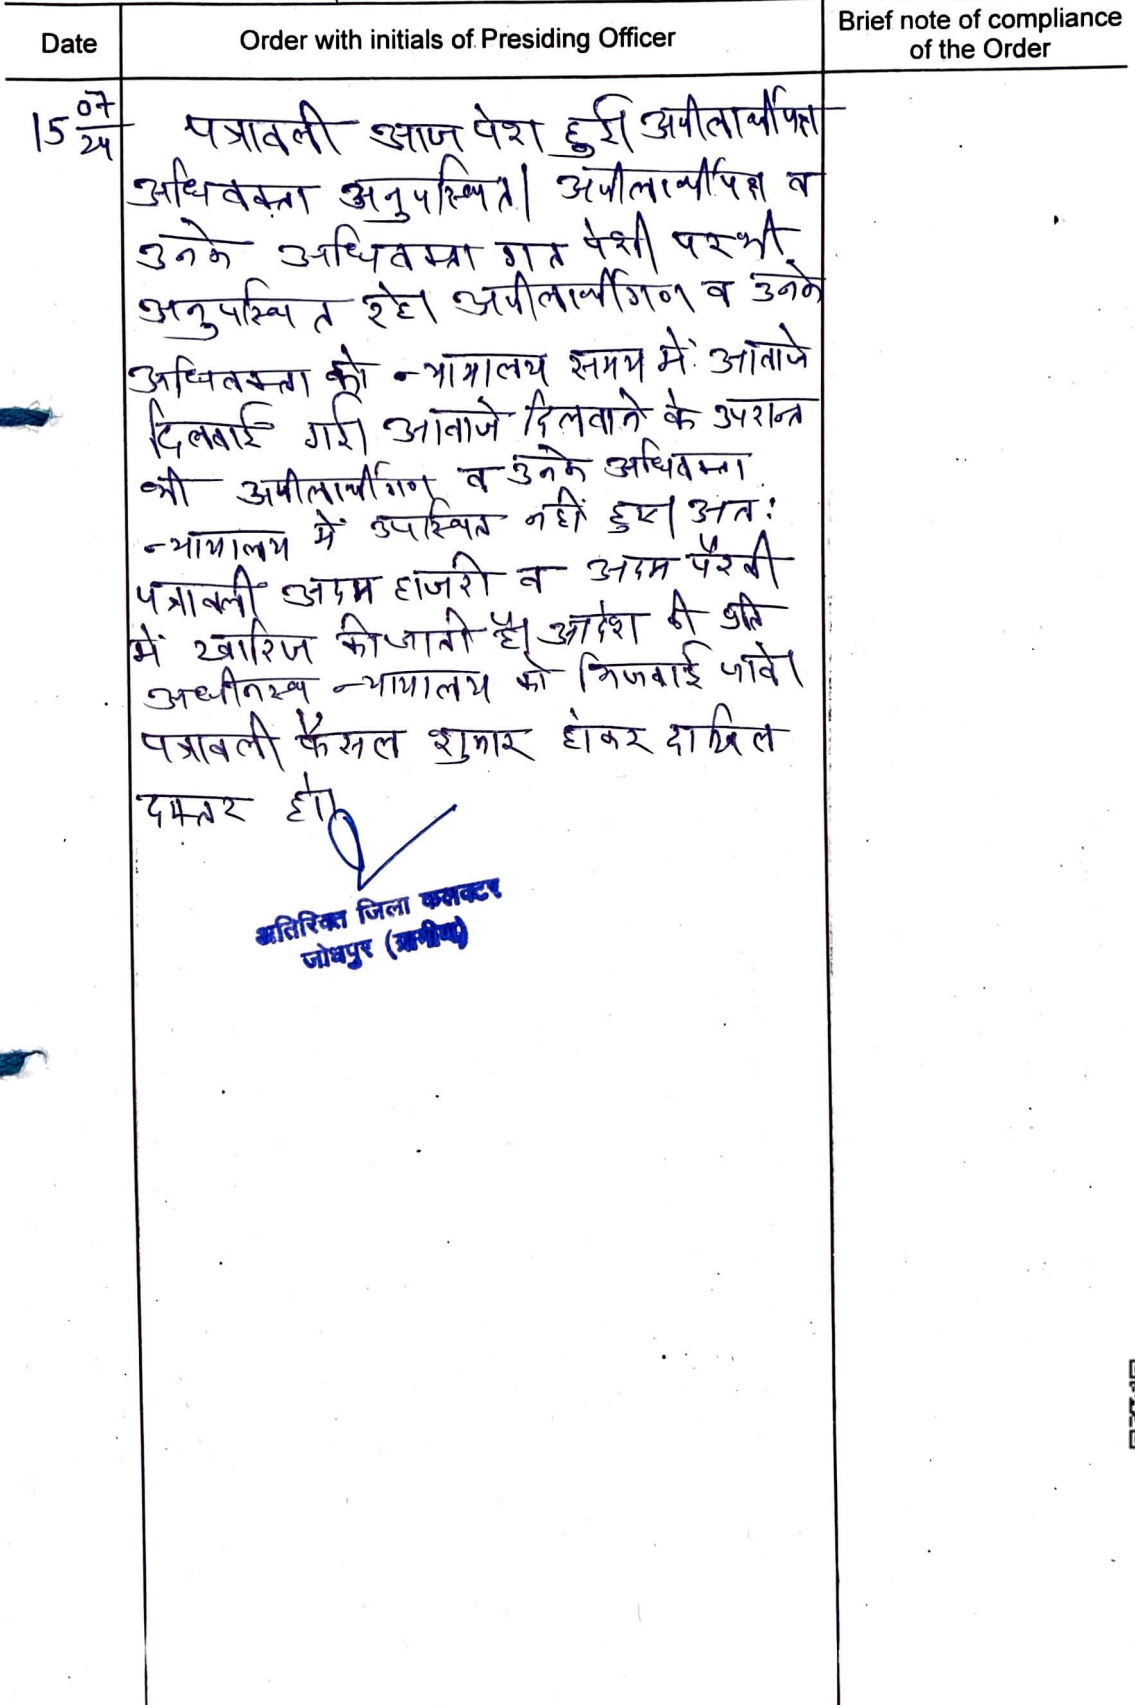 Date
Order with initials of Presiding Officer
Brief note of compliance
of the Order
15 07/24
पत्रावली आज पेश हुई। अपीलार्थीपक्ष
अधिवक्ता अनुपस्थित। अपीलार्थीपक्ष व
उनके अधिवक्ता गत पेशी पर भी
अनुपस्थित रहे। अपीलार्थीगण व उनके
अधिवक्ता को न्यायालय समय में आवाजे
दिलवाई गई। आवाजे दिलवाने के उपरान्त
भी अपीलार्थीगण व उनके अधिवक्ता
न्यायालय में उपस्थित नहीं हुए। अत:
पत्रावली अदम हाजरी व अदम पैरवी
में खारिज की जाती है। आदेश की प्रति
अधीनस्थ न्यायालय को भिजवाई जावे।
पत्रावली फैसल शुमार होकर दाखिल
दफ्तर हो।
अतिरिक्त जिला कलक्टर
जोधपुर (ग्रामीण)